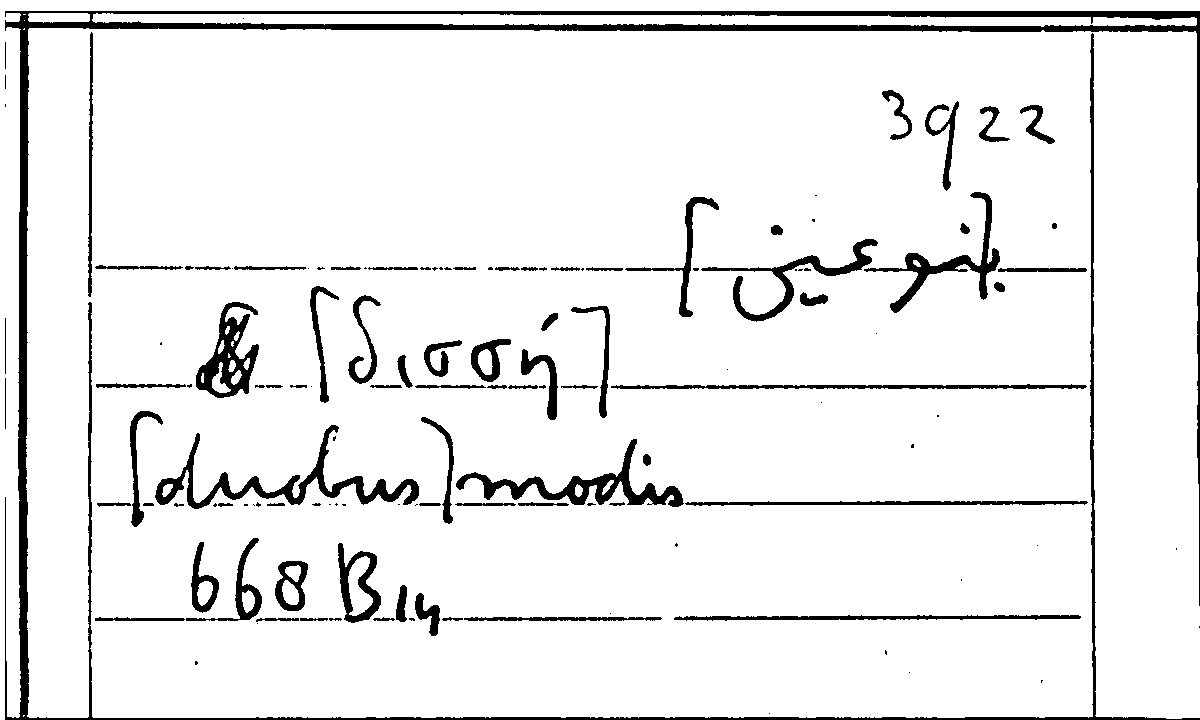 3922
[بنوعين]
[δισσή]
[duobus] modis
668 B 14